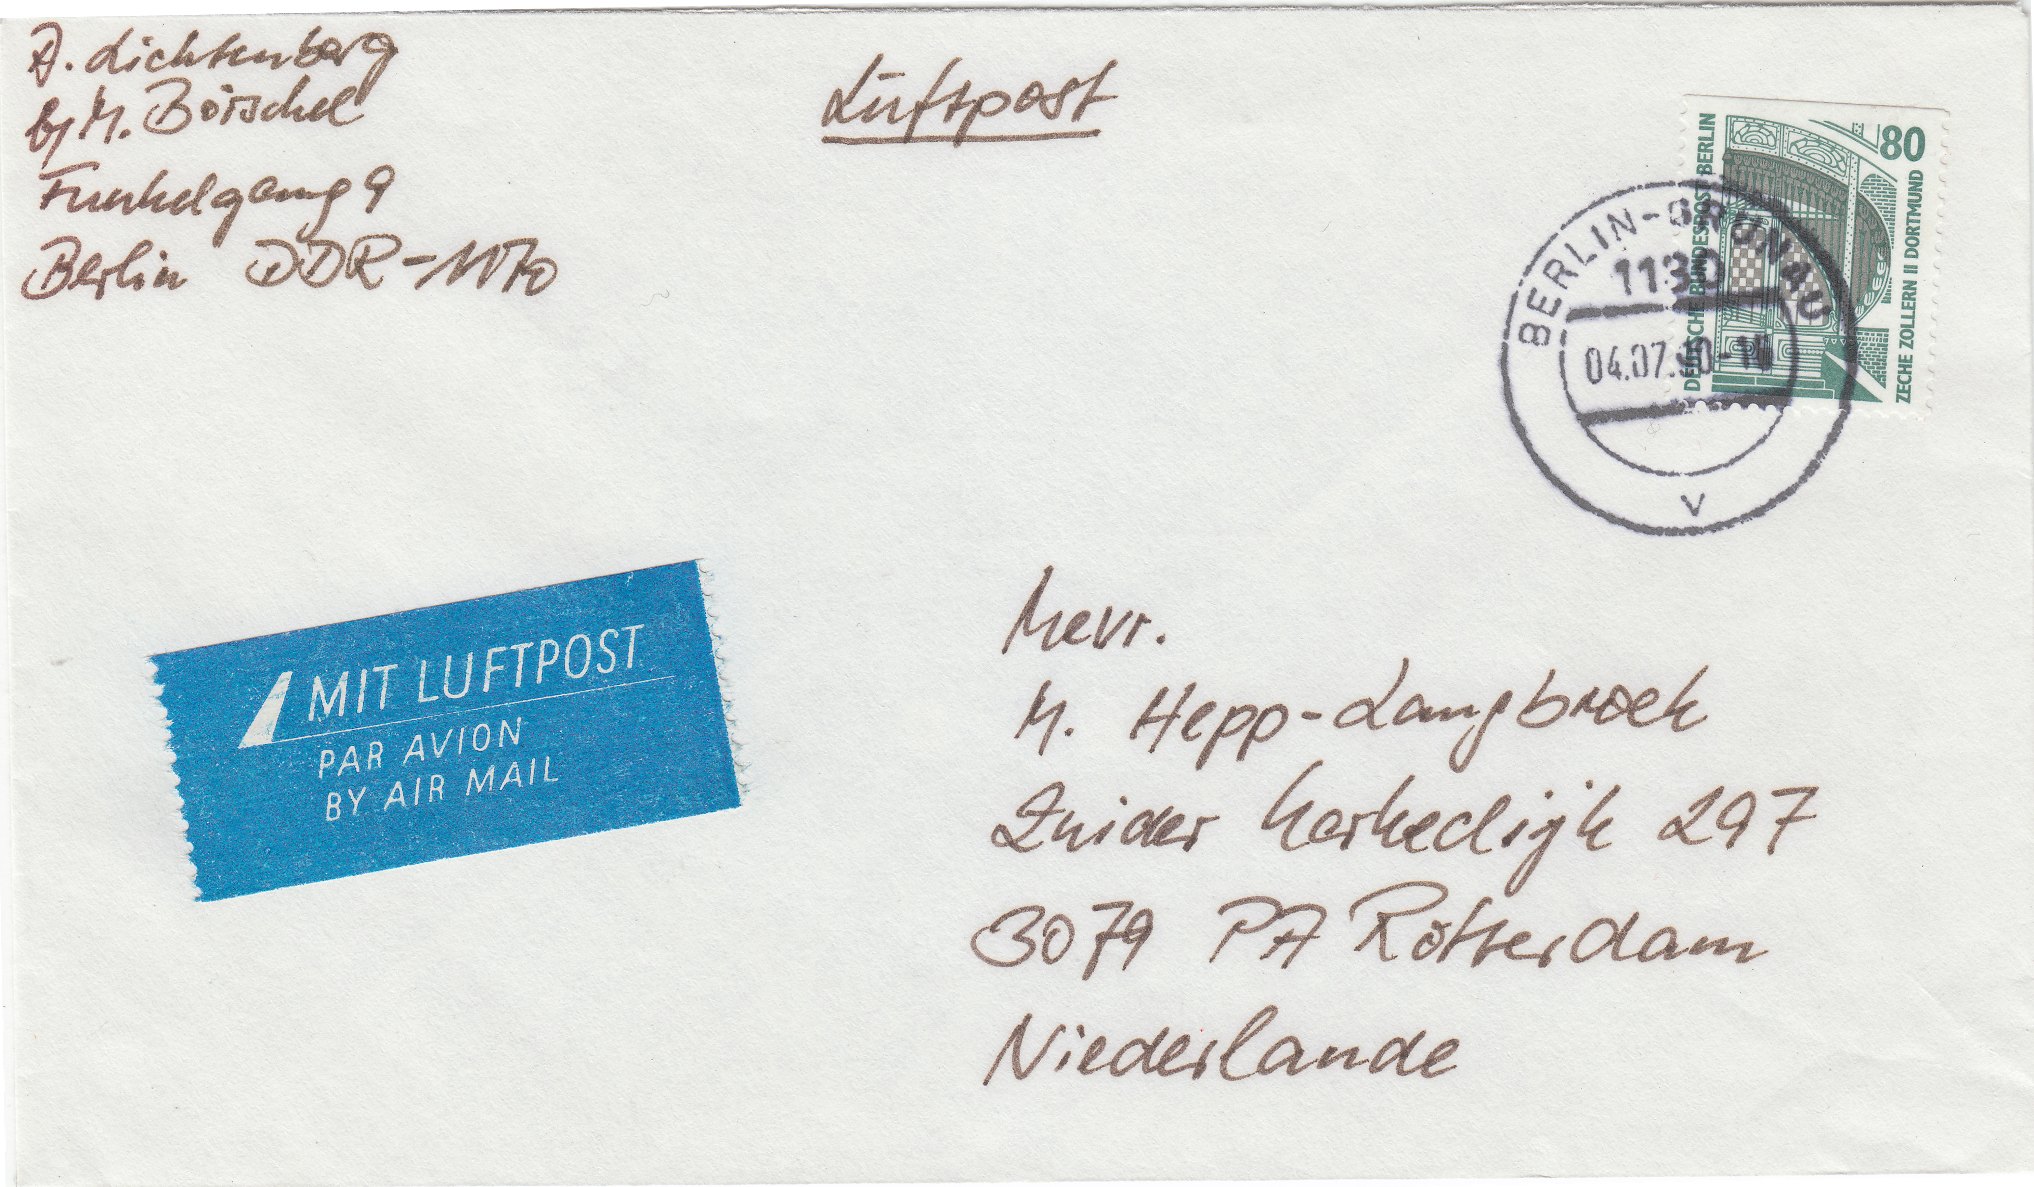 A. Lichtenberg
b/ M. Börschel
Funkelgang 9
Berlin DDR-1170
Luftpost
80
DEUTSCHE BUNDESPOST BERLIN
ZECHE ZOLLERN II DORTMUND
BERLIN-GRÜNAU
04.07.90-
V
MIT LUFTPOST
PAR AVION
BY AIR MAIL
Mevr.
M. Hepp-Langbroek
Zuider Kerkedijk 297
3079 PA Rotterdam
Niederlande